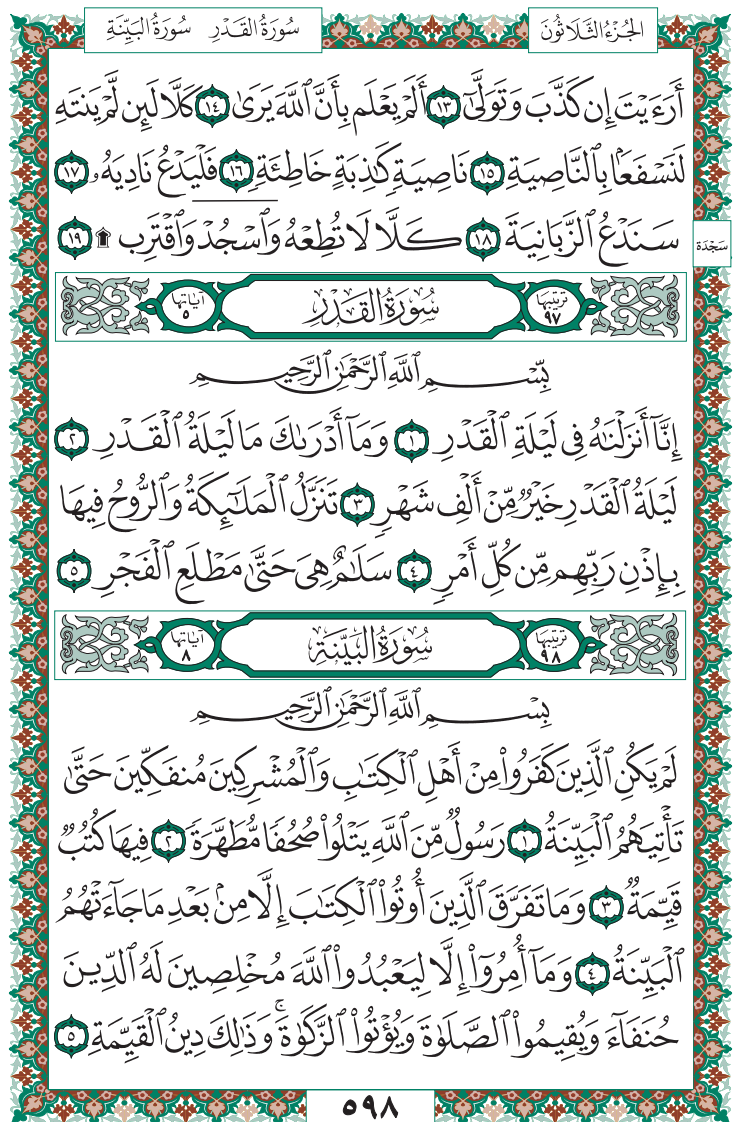 سُورَةُ القَدْرِ سُورَةُ البَيِّنَةِ
الجُزْءُ الثَّلَاثُونَ
أَرَءَيْتَ إِن كَذَّبَ وَتَوَلَّىٰٓ ١٣ أَلَمْ يَعْلَم بِأَنَّ ٱللَّهَ يَرَىٰ ١٤ كَلَّا لَئِن لَّمْ يَنتَهِ
لَنَسْفَعًۢا بِٱلنَّاصِيَةِ ١٥ نَاصِيَةٍ كَٰذِبَةٍ خَاطِئَةٍ ١٦ فَلْيَدْعُ نَادِيَهُۥ ١٧
سَنَدْعُ ٱلزَّبَانِيَةَ ١٨ كَلَّا لَا تُطِعْهُ وَٱسْجُدْ وَٱقْتَرِب ۩ ١٩
سَجْدَة
تَرتيبُها ٩٧ سُورَةُ القَدْرِ آيَاتُها ٥
بِسْمِ ٱللَّهِ ٱلرَّحْمَٰنِ ٱلرَّحِيمِ
إِنَّآ أَنزَلْنَٰهُ فِى لَيْلَةِ ٱلْقَدْرِ ١ وَمَآ أَدْرَىٰكَ مَا لَيْلَةُ ٱلْقَدْرِ ٢
لَيْلَةُ ٱلْقَدْرِ خَيْرٌ مِّنْ أَلْفِ شَهْرٍ ٣ تَنَزَّلُ ٱلْمَلَٰٓئِكَةُ وَٱلرُّوحُ فِيهَا
بِإِذْنِ رَبِّهِم مِّن كُلِّ أَمْرٍ ٤ سَلَٰمٌ هِىَ حَتَّىٰ مَطْلَعِ ٱلْفَجْرِ ٥
تَرتيبُها ٩٨ سُورَةُ البَيِّنَةِ آيَاتُها ٨
بِسْمِ ٱللَّهِ ٱلرَّحْمَٰنِ ٱلرَّحِيمِ
لَمْ يَكُنِ ٱلَّذِينَ كَفَرُوا۟ مِنْ أَهْلِ ٱلْكِتَٰبِ وَٱلْمُشْرِكِينَ مُنفَكِّينَ حَتَّىٰ
تَأْتِيَهُمُ ٱلْبَيِّنَةُ ١ رَسُولٌ مِّنَ ٱللَّهِ يَتْلُوا۟ صُحُفًا مُّطَهَّرَةً ٢ فِيهَا كُتُبٌ
قَيِّمَةٌ ٣ وَمَا تَفَرَّقَ ٱلَّذِينَ أُوتُوا۟ ٱلْكِتَٰبَ إِلَّا مِنۢ بَعْدِ مَا جَآءَتْهُمُ
ٱلْبَيِّنَةُ ٤ وَمَآ أُمِرُوٓا۟ إِلَّا لِيَعْبُدُوا۟ ٱللَّهَ مُخْلِصِينَ لَهُ ٱلدِّينَ
حُنَفَآءَ وَيُقِيمُوا۟ ٱلصَّلَوٰةَ وَيُؤْتُوا۟ ٱلزَّكَوٰةَ ۚ وَذَٰلِكَ دِينُ ٱلْقَيِّمَةِ ٥
٥٩٨